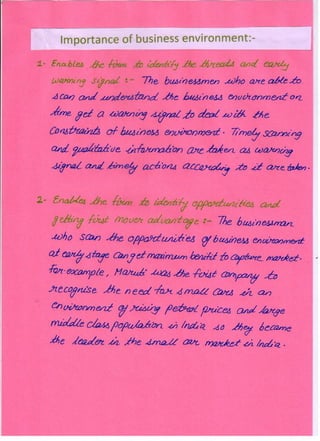 Importance of business environment:-
1- Enables the firm to identify the threads and early
warning signal :- The businessmen who are able to
scan and understand the business environment on
time get a warning signal to deal with the
Constraints of business environment. Timely scanning
and qualitative information are taken as warning
signal and timely actions according to it are taken.
2- Enables the firm to identify opportunities and
getting first mover advantage :- The businessman
who scan the opportunities of business environment
at early stage can get maximum benifit to capture market.
For example, Maruti was the first company to
recognise the need for small cars in an
environment of rising petrol prices and large
middle class population in India so they became
the leader in the small car market in India.